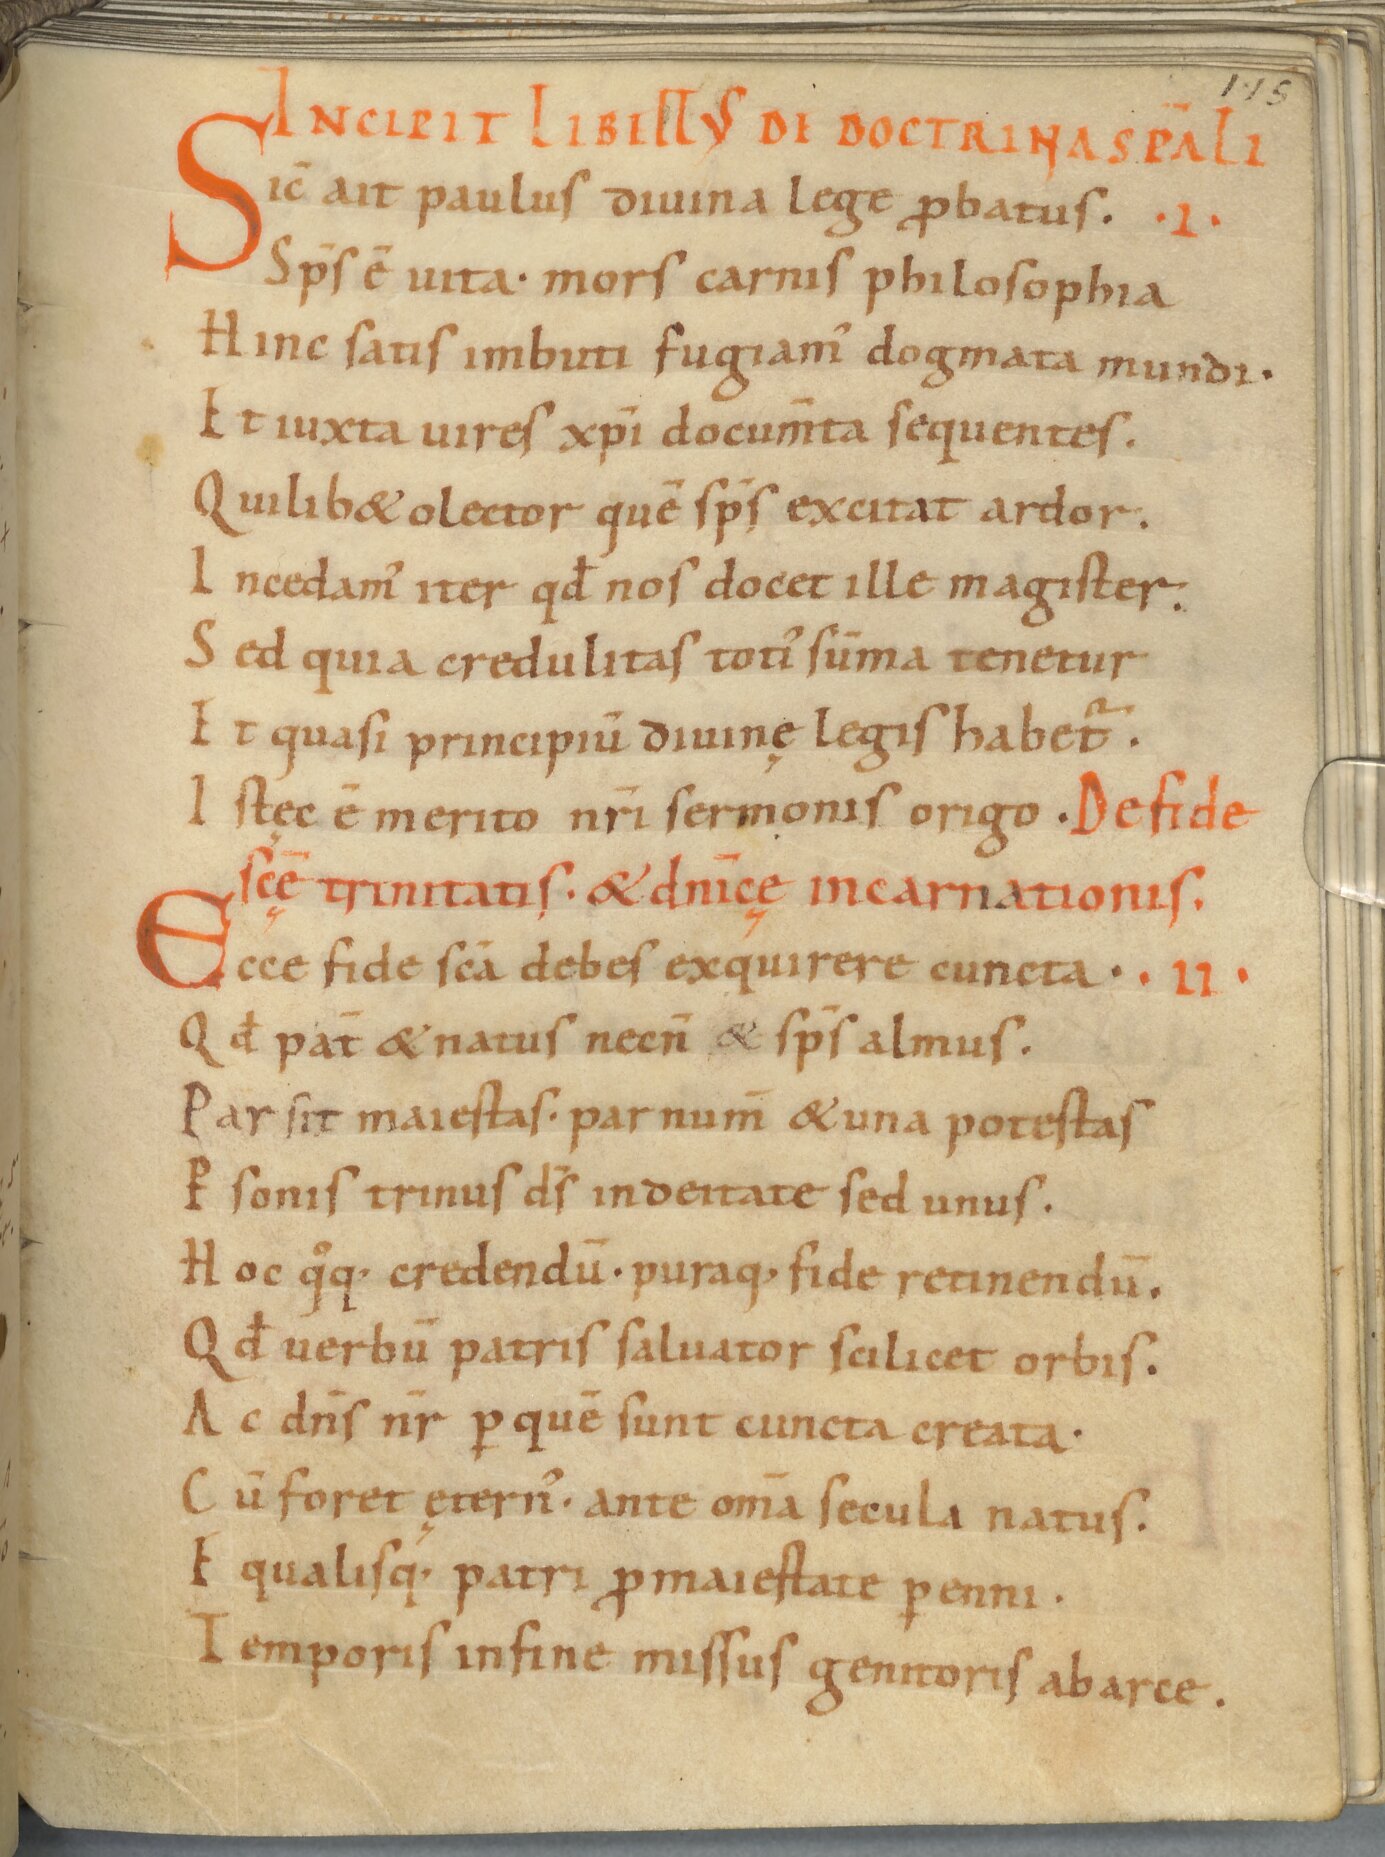 115
INCIPIT LIBELLVS DE DOCTRINA SPA̅LI
Sic̅ ait paulus diuina lege ꝓbatus. ·I·
Sp̅s e̅ uita· mors carnis philosophia
Hinc satis imbuti fugiam᾽ dogmata mundi.
Et iuxta uires xp̅i docum̅ta sequentes.
Quilib& o lector que̅ sp̅s excitat ardor.
Incedam᾽ iter qd̅ nos docet ille magister.
Sed quia credulitas toti᾽ su̅ma tenetur
Et quasi principiu̅ diuinę legis habet᷑.
Istęc e̅ merito nr̅i sermonis origo. De fide
sc̅ę trinitatis. & dn̅icę incarnationis.
Ecce fide sc̅a debes exquirere cuncta. ·II·
Qd̅ pat̅ & natus necn̅ & sp̅s almus.
Par sit maiestas. par num̅ & una potestas
P̱sonis trinus ds̅ in deitate sed unus.
Hoc qͦq· credendu̅. puraq· fide retinendu̅.
Qd̅ uerbu̅ patris saluator scilicet orbis.
Ac dn̅s nr̅ ꝑ que̅ sunt cuncta creata.
Cu̅ foret ętern᾽. ante om̅a secula natus.
Equalisq· patri ꝓ maiestate ꝑenni.
Temporis in fine missus genitoris ab arce.